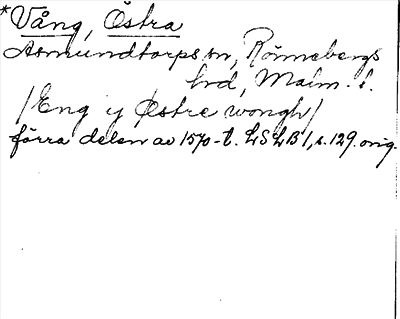 *Vång, Östra
Asmundtorps sn, Rönnebergs
hrd, Malm. l.
/Eng y Östre wongh/
förra delen av 1570-t. LSLB 1, s. 129. orig.